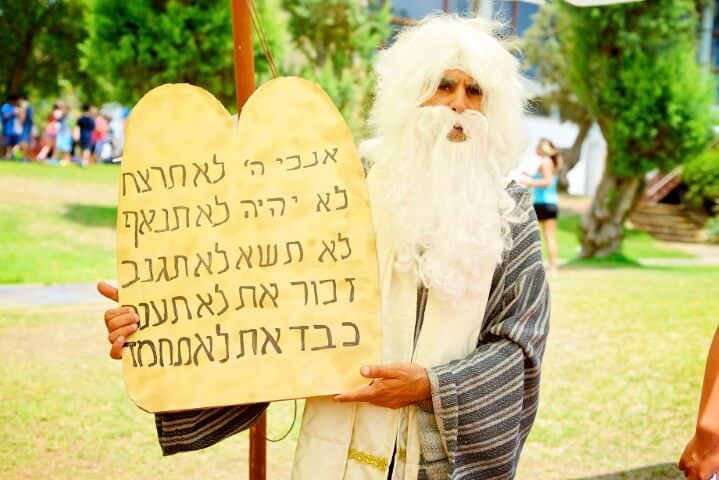 אנכי ה׳ לא תרצח
לא יהיה לא תנאף
לא תשא לא תגנב
זכור את לא תענה
כבד את לא תחמד